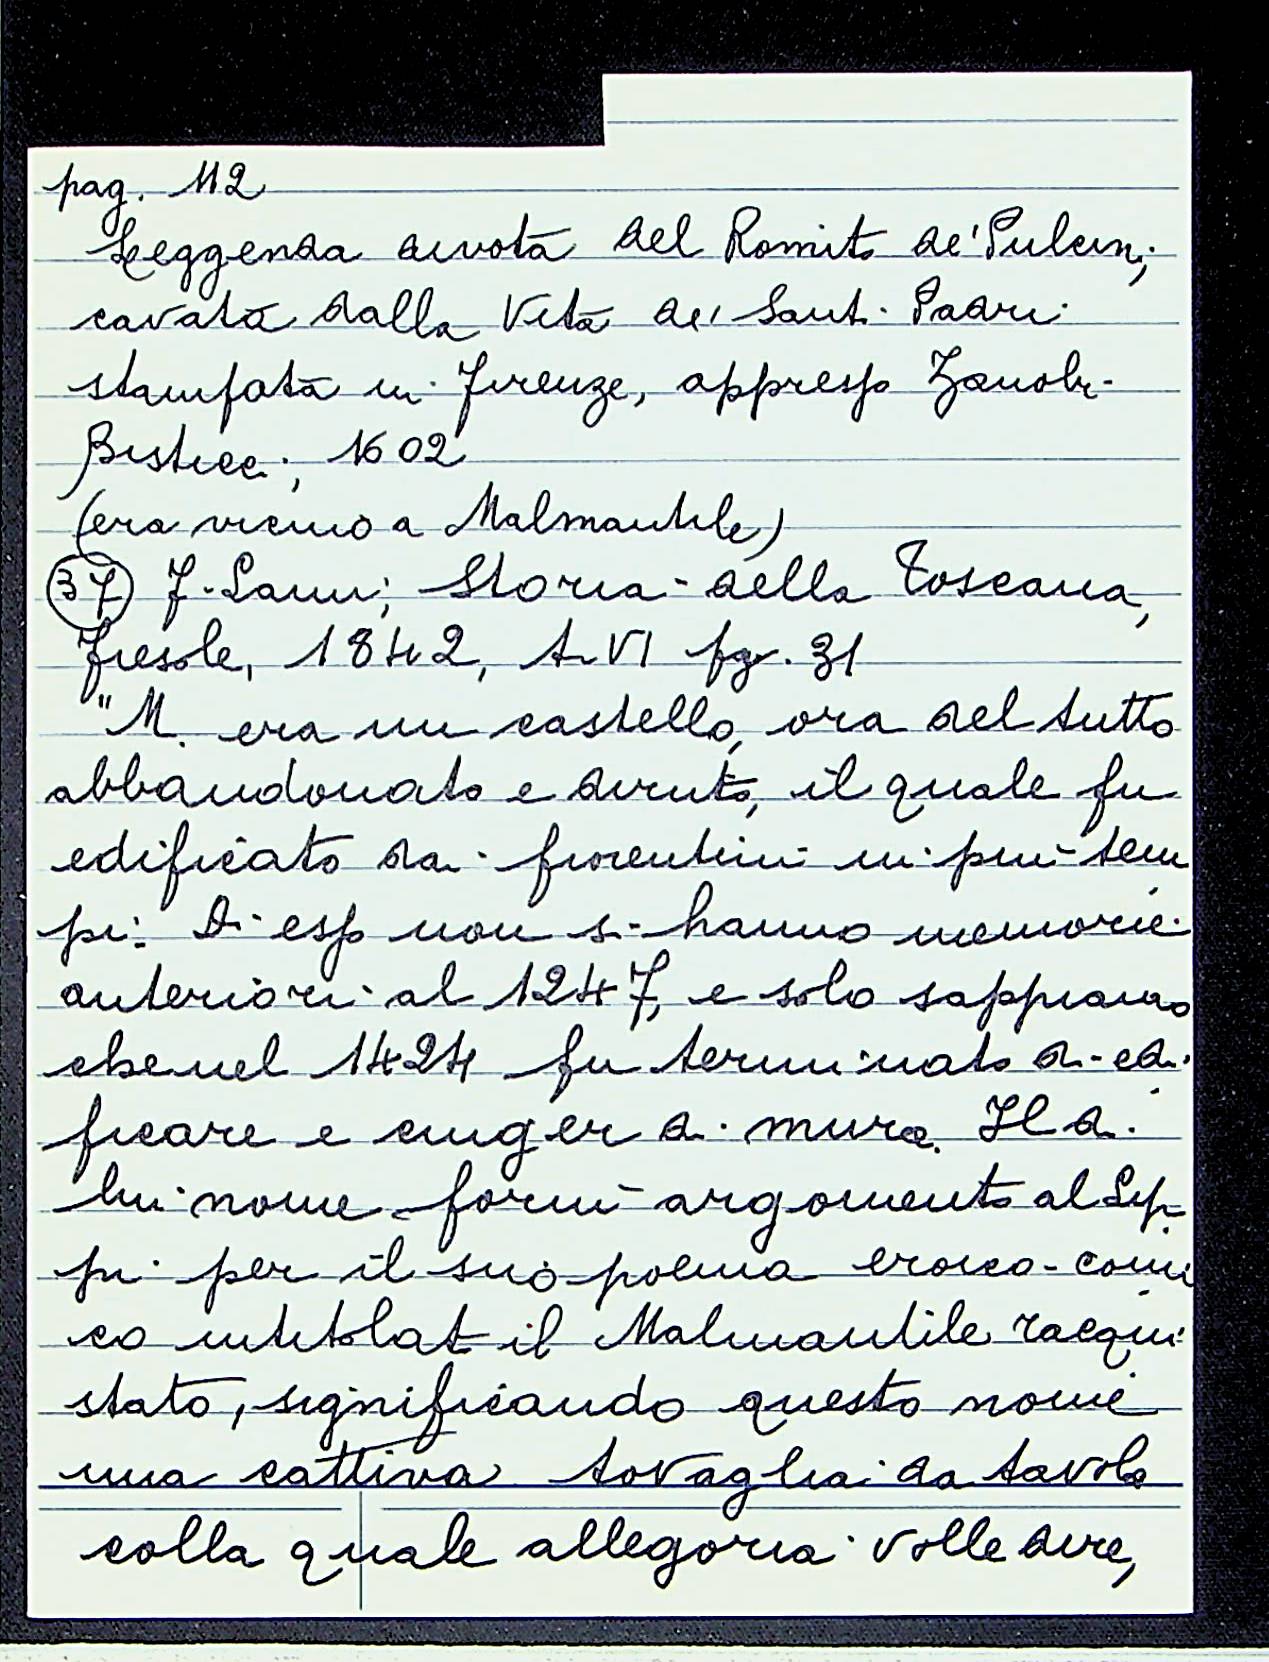 pag. 112
Leggenda divota del Romito de' Pulcini,
cavata dalla Vita de' Santi Padri
stampata in Firenze, appresso Zanobi
Bisticci, 1602
(era vicino a Malmantile)
37 F. Lami, Storia della Toscana,
Fiesole, 1842, t. VI pg. 31
"M. era un castello, ora del tutto
abbandonato e diruto, il quale fu
edificato dai fiorentini in più tem
pi. Di esso non si hanno memorie
anteriori al 1247, e solo sappiamo
che nel 1424 fu terminato di edi
ficare e cinger di mura. Il di
lui nome fornì argomento al Lip-
pi per il suo poema eroico-comi
co intitolat il Malmantile racqui
stato, significando questo nome
una cattiva tovaglia da tavola
colla quale allegoria volle dire,